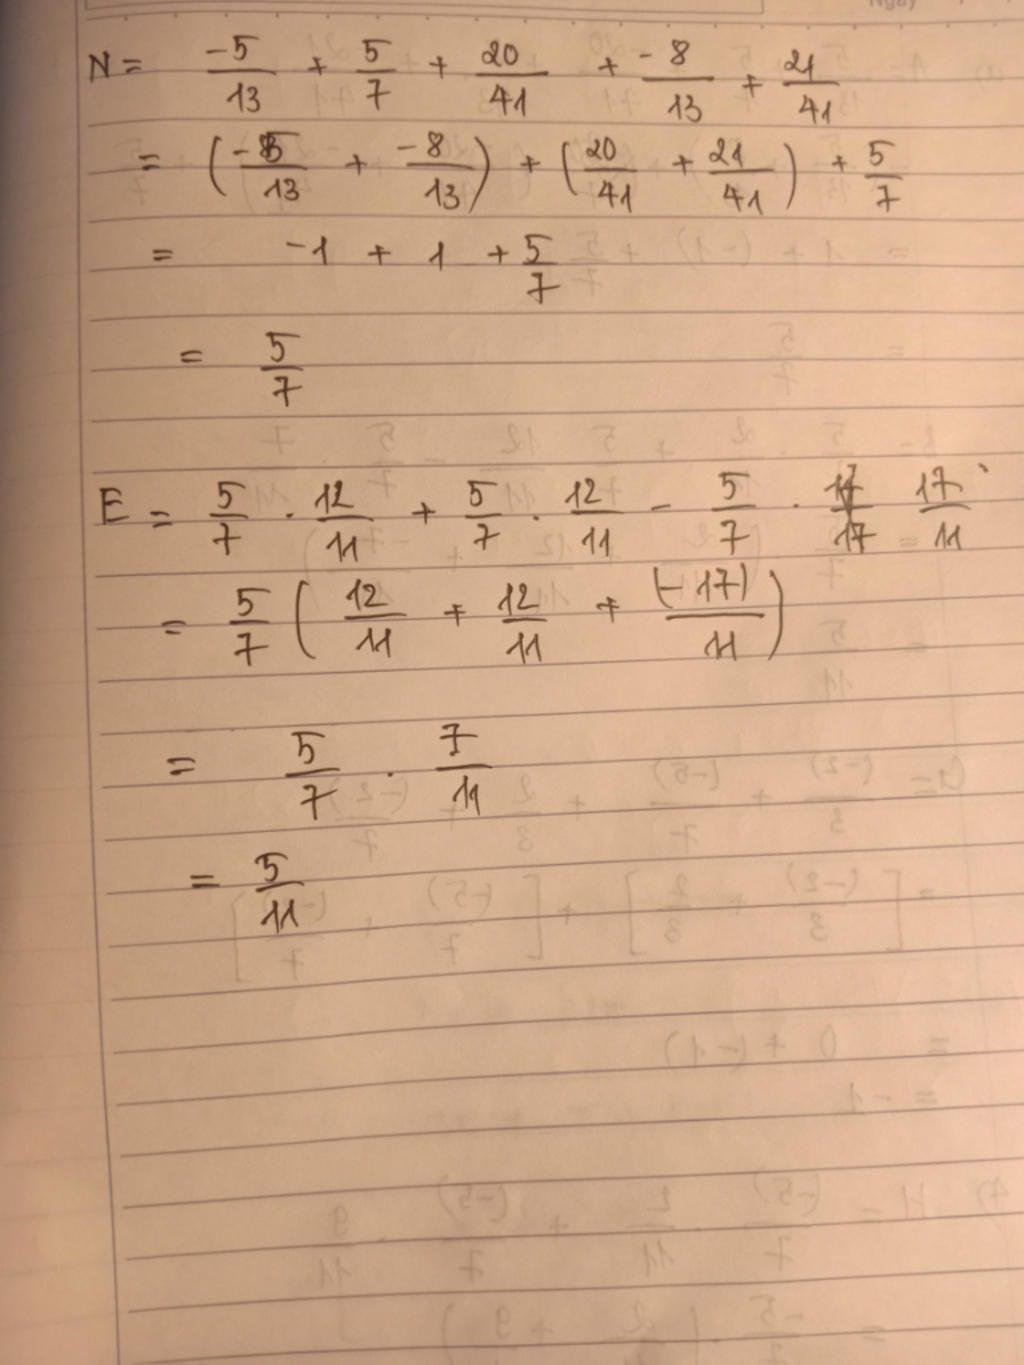 N = -5/13 + 5/7 + 20/41 + -8/13 + 21/41
= (-5/13 + -8/13) + (20/41 + 21/41) + 5/7
= -1 + 1 + 5/7
= 5/7
E = 5/7 . 12/11 + 5/7 . 12/11 - 5/7 . 17/11
= 5/7 (12/11 + 12/11 + (-17)/11)
= 5/7 . 7/11
= 5/11